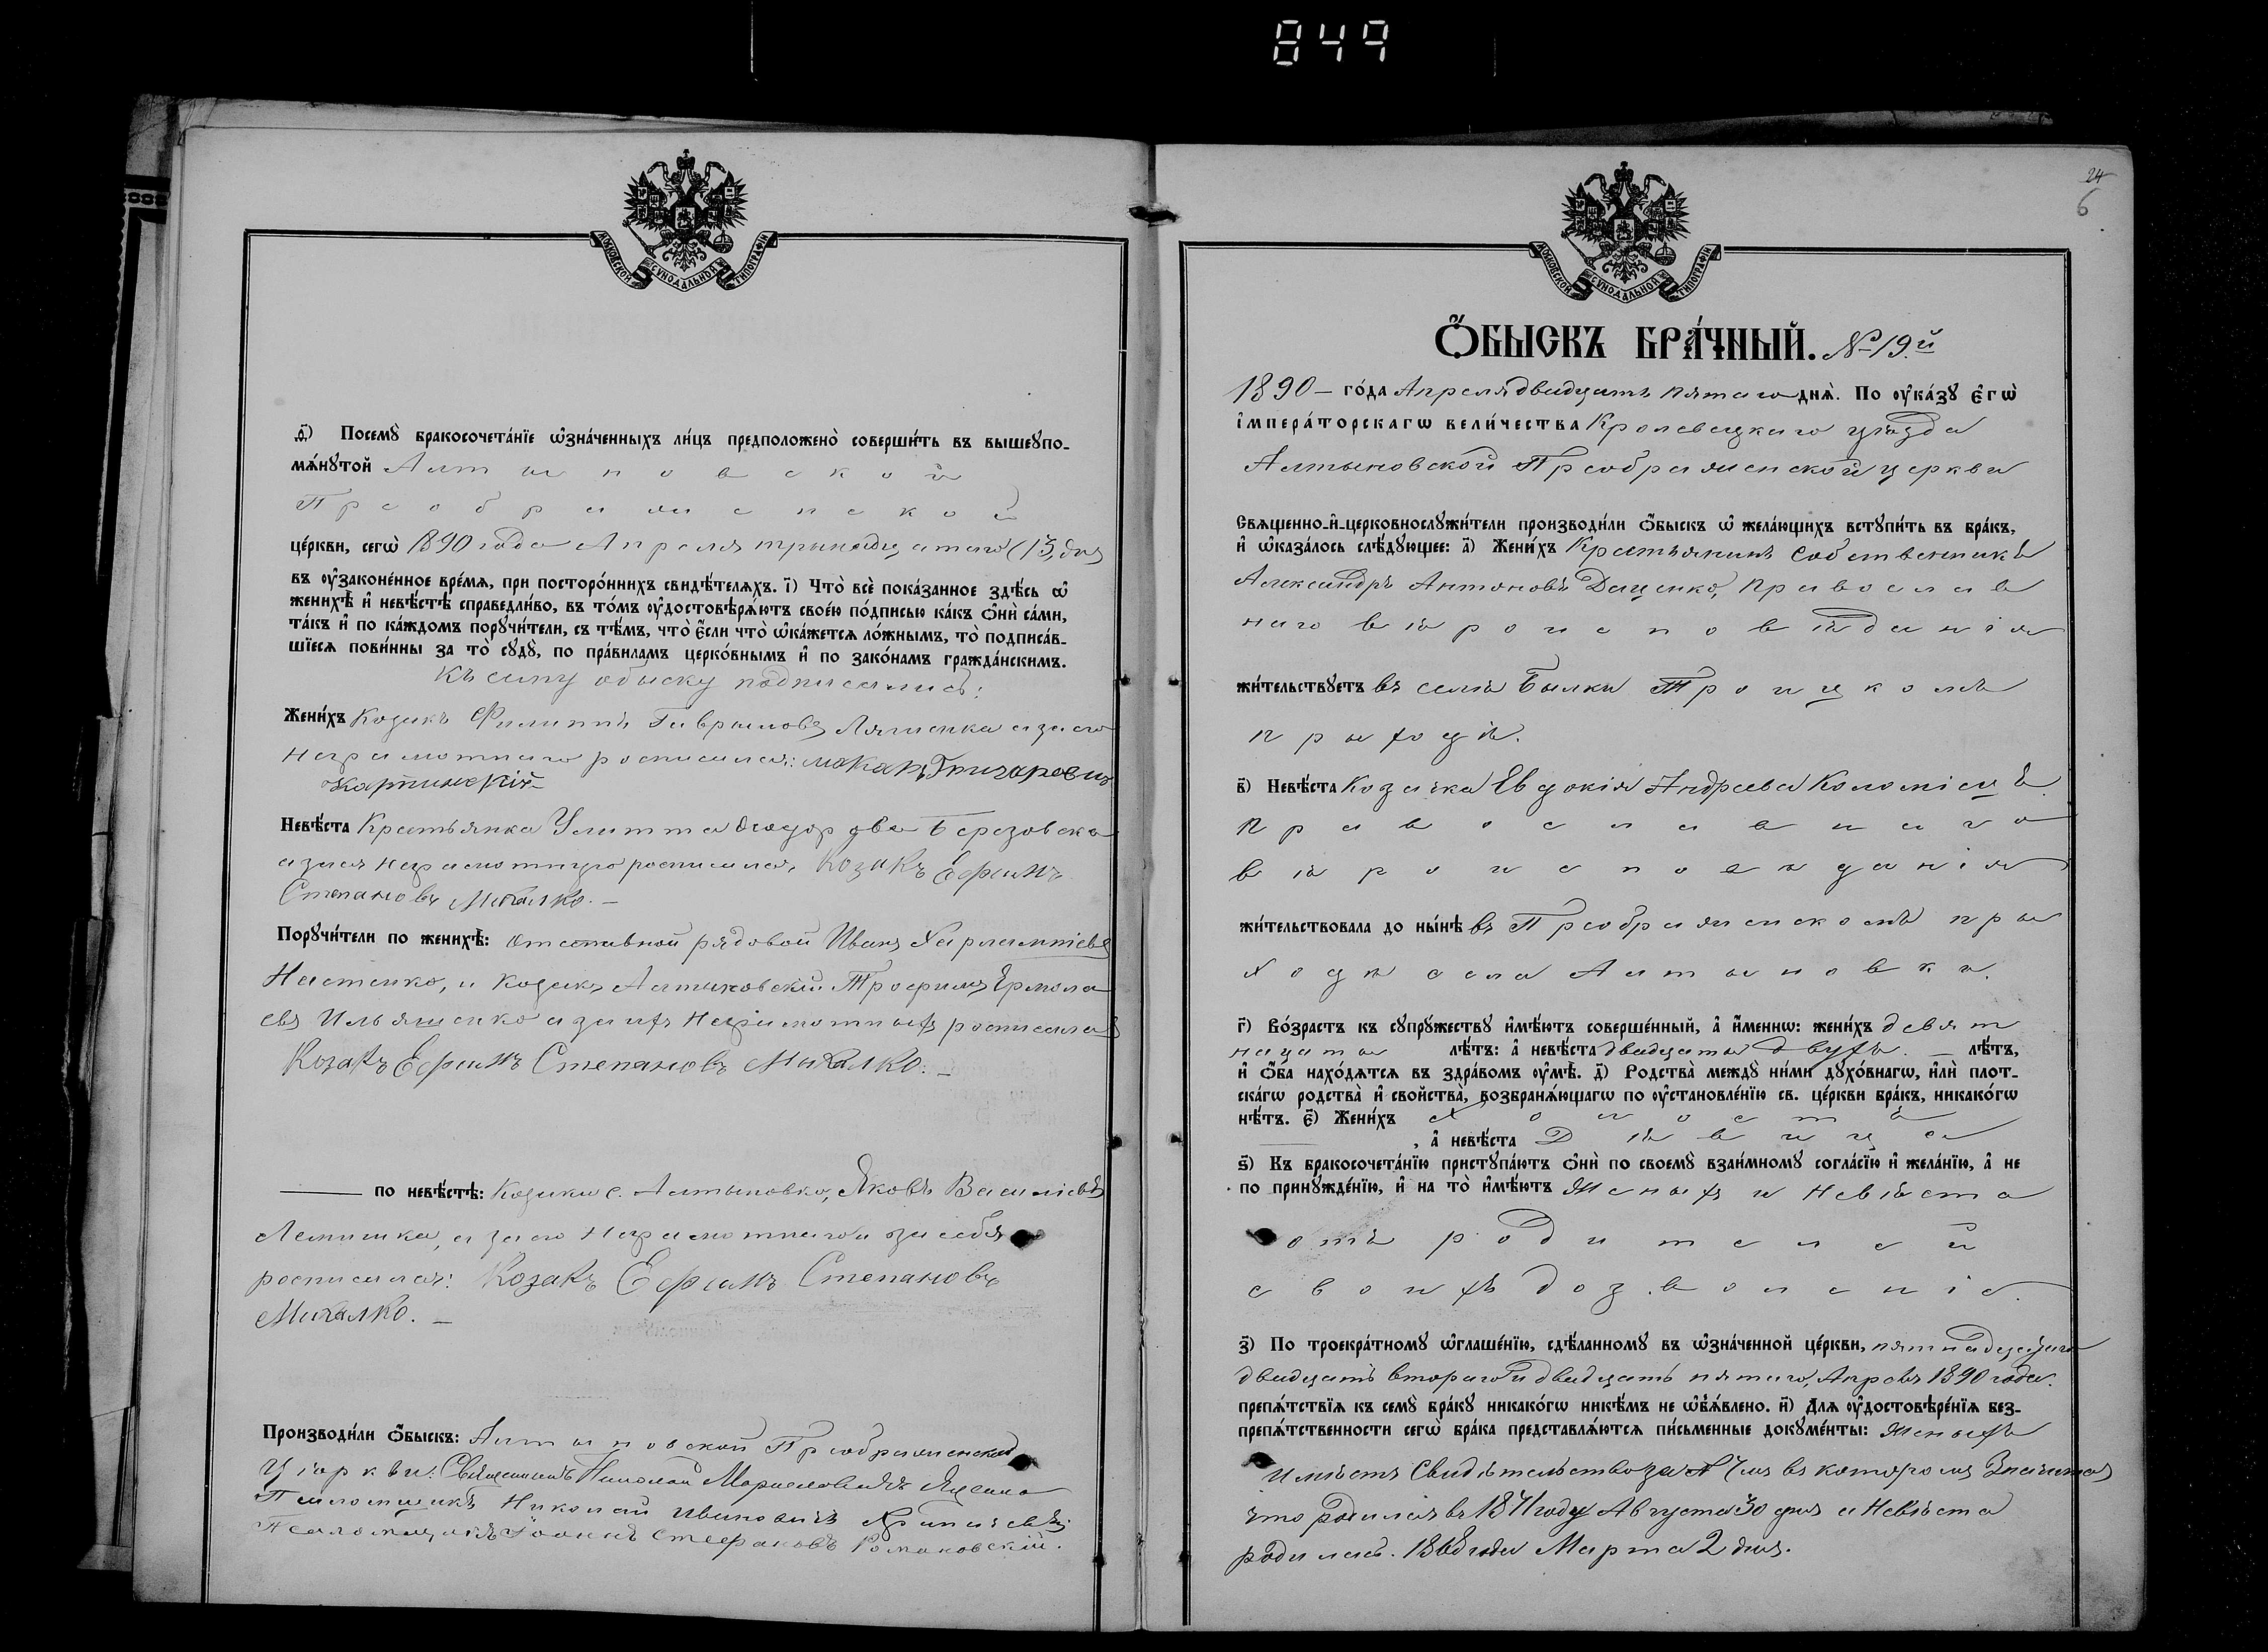 849
МОСКОВСКОЙ СѴНОДАЛЬНОЙ ТИПОГРАФІИ
д҃) Посемꙋ̀ бракосочета́нїе ѡ҆зна́ченныхъ ли́цъ предположено̀ соверши́ть въ вышеꙋпо-
мѧ́нꙋтой Алтыновской
Преображенской
це́ркви, сегѡ̀ 1890 года Апреля тринадцатаго (13) дня
въ ᲂу҆законе́нное вре́мѧ, при посторо́ннихъ свидѣ́телѧхъ. і҃) Что̀ всѐ пока́занное здѣ́сь ѡ҆
женихѣ̀ и҆ невѣ́стѣ справедли́во, въ то́мъ ᲂу҆достовѣрѧ́ютъ свое́ю по́дписью ка́къ ѻ҆нѝ са́ми,
та́къ и҆ по ка́ждомъ порꙋчи́тели, съ тѣ́мъ, что̀ є҆́сли что̀ ѡ҆ка́жетсѧ ло́жнымъ, то̀ подписа́в-
шїесѧ пови́нны за то̀ сꙋдꙋ̀, по пра́виламъ церко́внымъ и҆ по зако́намъ гражда́нскимъ.
Къ сему обыску подписались:
Жени́хъ Козакъ Филиппъ Гавриловъ а за его
неграмотнаго росписался: Макаръ Григоревъ
Невѣ́ста Крестьянка Улитта Федорова Березовска
а за ея неграмотную росписался, Козакъ Ефимъ
Степановъ Михалко. —
Порꙋчи́тели по женихѣ̀: Отставной рядовой Иванъ Харлампіевъ
Настенко, и Козакъ Алтыновскій Трофимъ Ермола
евъ Ильяшенко а за ихъ неграмотныхъ росписался
Козакъ Ефимъ Степановъ Михалко. —
по невѣ́стѣ: Козаки с. Алтыновки, Яковъ Василіевъ
а за его неграмотнаго и за себя
росписался: Козакъ Ефимъ Степановъ
Михалко. —
Производи́ли ѻ҆́быскъ: Алтыновской Преображенской
Церкви: Священникъ Николай
Псаломщикъ Николай Ивановичъ
Псаломщикъ Іоаннъ Стефановъ Романовскій.
24
6
МОСКОВСКОЙ СѴНОДАЛЬНОЙ ТИПОГРАФІИ
Ѻ҆́БЫСКЪ БРА́ЧНЫЙ. № 19.й
1890 — го́да Апреля двадцать пятаго днѧ̀. По ᲂу҆ка́зꙋ є҆гѡ̀
і҆мпера́торскагѡ вели́чества Кролевецкаго уѣзда
Алтыновской Преображенской церкви
Свѧщенно-и҆-церковнослꙋжи́тели производи́ли ѻ҆́быскъ ѡ҆ жела́ющихъ встꙋпи́ть въ бра́къ,
и҆ ѡ҆каза́лось слѣ́дꙋющее: а҃) Жени́хъ Крестьянинъ собственникъ
Александръ Антоновъ Даценко, православ
наго вѣроисповѣданія
жи́тельствꙋетъ въ селѣ Былки Троицкомъ
приходѣ.
в҃) Невѣ́ста Козачка Евдокія Андреева Коломіецъ
православнаго
вѣроисповѣданія
жи́тельствовала до ны́нѣ въ Преображенскомъ при
ходѣ села Алтыновки.
г҃) Во́зрастъ къ сꙋпрꙋ́жествꙋ и҆мѣ́ютъ соверше́нный, а҆ и҆́менно: жени́хъ девят
надцати лѣ́тъ: а҆ невѣ́ста двадцати двухъ. — лѣ́тъ,
и҆ ѻ҆́ба нахо́дѧтсѧ въ здра́вомъ ᲂу҆мѣ̀. д҃) Родства̀ междꙋ̀ ни́ми дꙋхо́внагѡ, и҆лѝ плот-
ска́гѡ родства̀ и҆ свойства̀, возбранѧ́ющагѡ по ᲂу҆становле́нїю св. це́ркви бра́къ, никако́гѡ
нѣ́тъ. є҃) Жени́хъ холостъ
, а҆ невѣ́ста Дѣвица
ѕ҃) Къ бракосочета́нїю пристꙋпа́ютъ ѻ҆нѝ по своемꙋ̀ взаи́мномꙋ согла́сїю и҆ жела́нїю, а҆ не
по принꙋжде́нїю, и҆ на то̀ и҆мѣ́ютъ Женихъ и невѣста
отъ родителей
своихъ дозволеніе.
з҃) По троекра́тномꙋ ѡ҆глаше́нїю, сдѣ́ланномꙋ въ ѡ҆зна́ченной це́ркви, пятнадцатаго
двадцать втораго и двадцать пятаго, Апреля 1890 года.
препѧ́тствїѧ къ семꙋ̀ бра́кꙋ никако́гѡ никѣ́мъ не ѡ҆б̾ѧ́влено. и҃) Длѧ ᲂу҆достовѣре́нїѧ без-
препѧ́тственности сегѡ̀ бра́ка представлѧ́ютсѧ пи́сьменные докꙋме́нты: Женихъ
имѣетъ Свидѣтельство за № въ которомъ Значится
что родился въ 1871 году Августа 30 дня а Невѣста
родилась. 1868 года Марта 2 дня.